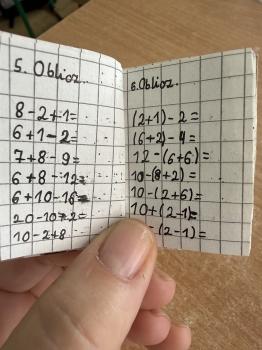 5. Oblicz.
8-2+1=
6+1-2=
7+8-9=
6+8-12=
6+10-16=
20-10+2=
10-2+8
6. Oblicz.
(2+1)-2=
(6+2)-4=
12-(6+6)=
10-(8+2)=
10-(2+6)=
10+(2-1)=
-(2-1)=